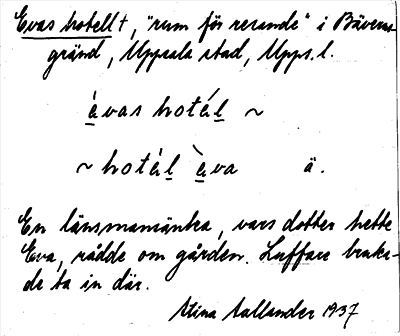 Evas hotell †, "rum för resande" i Bäverns
gränd, Uppsala stad, Upps. l.
évas hotál ~
~ hotál èva ä.
En länsmansänka, vars dotter hette
Eva, rådde om gården. Luffare bruka-
de ta in där.
Stina Sallander 1937